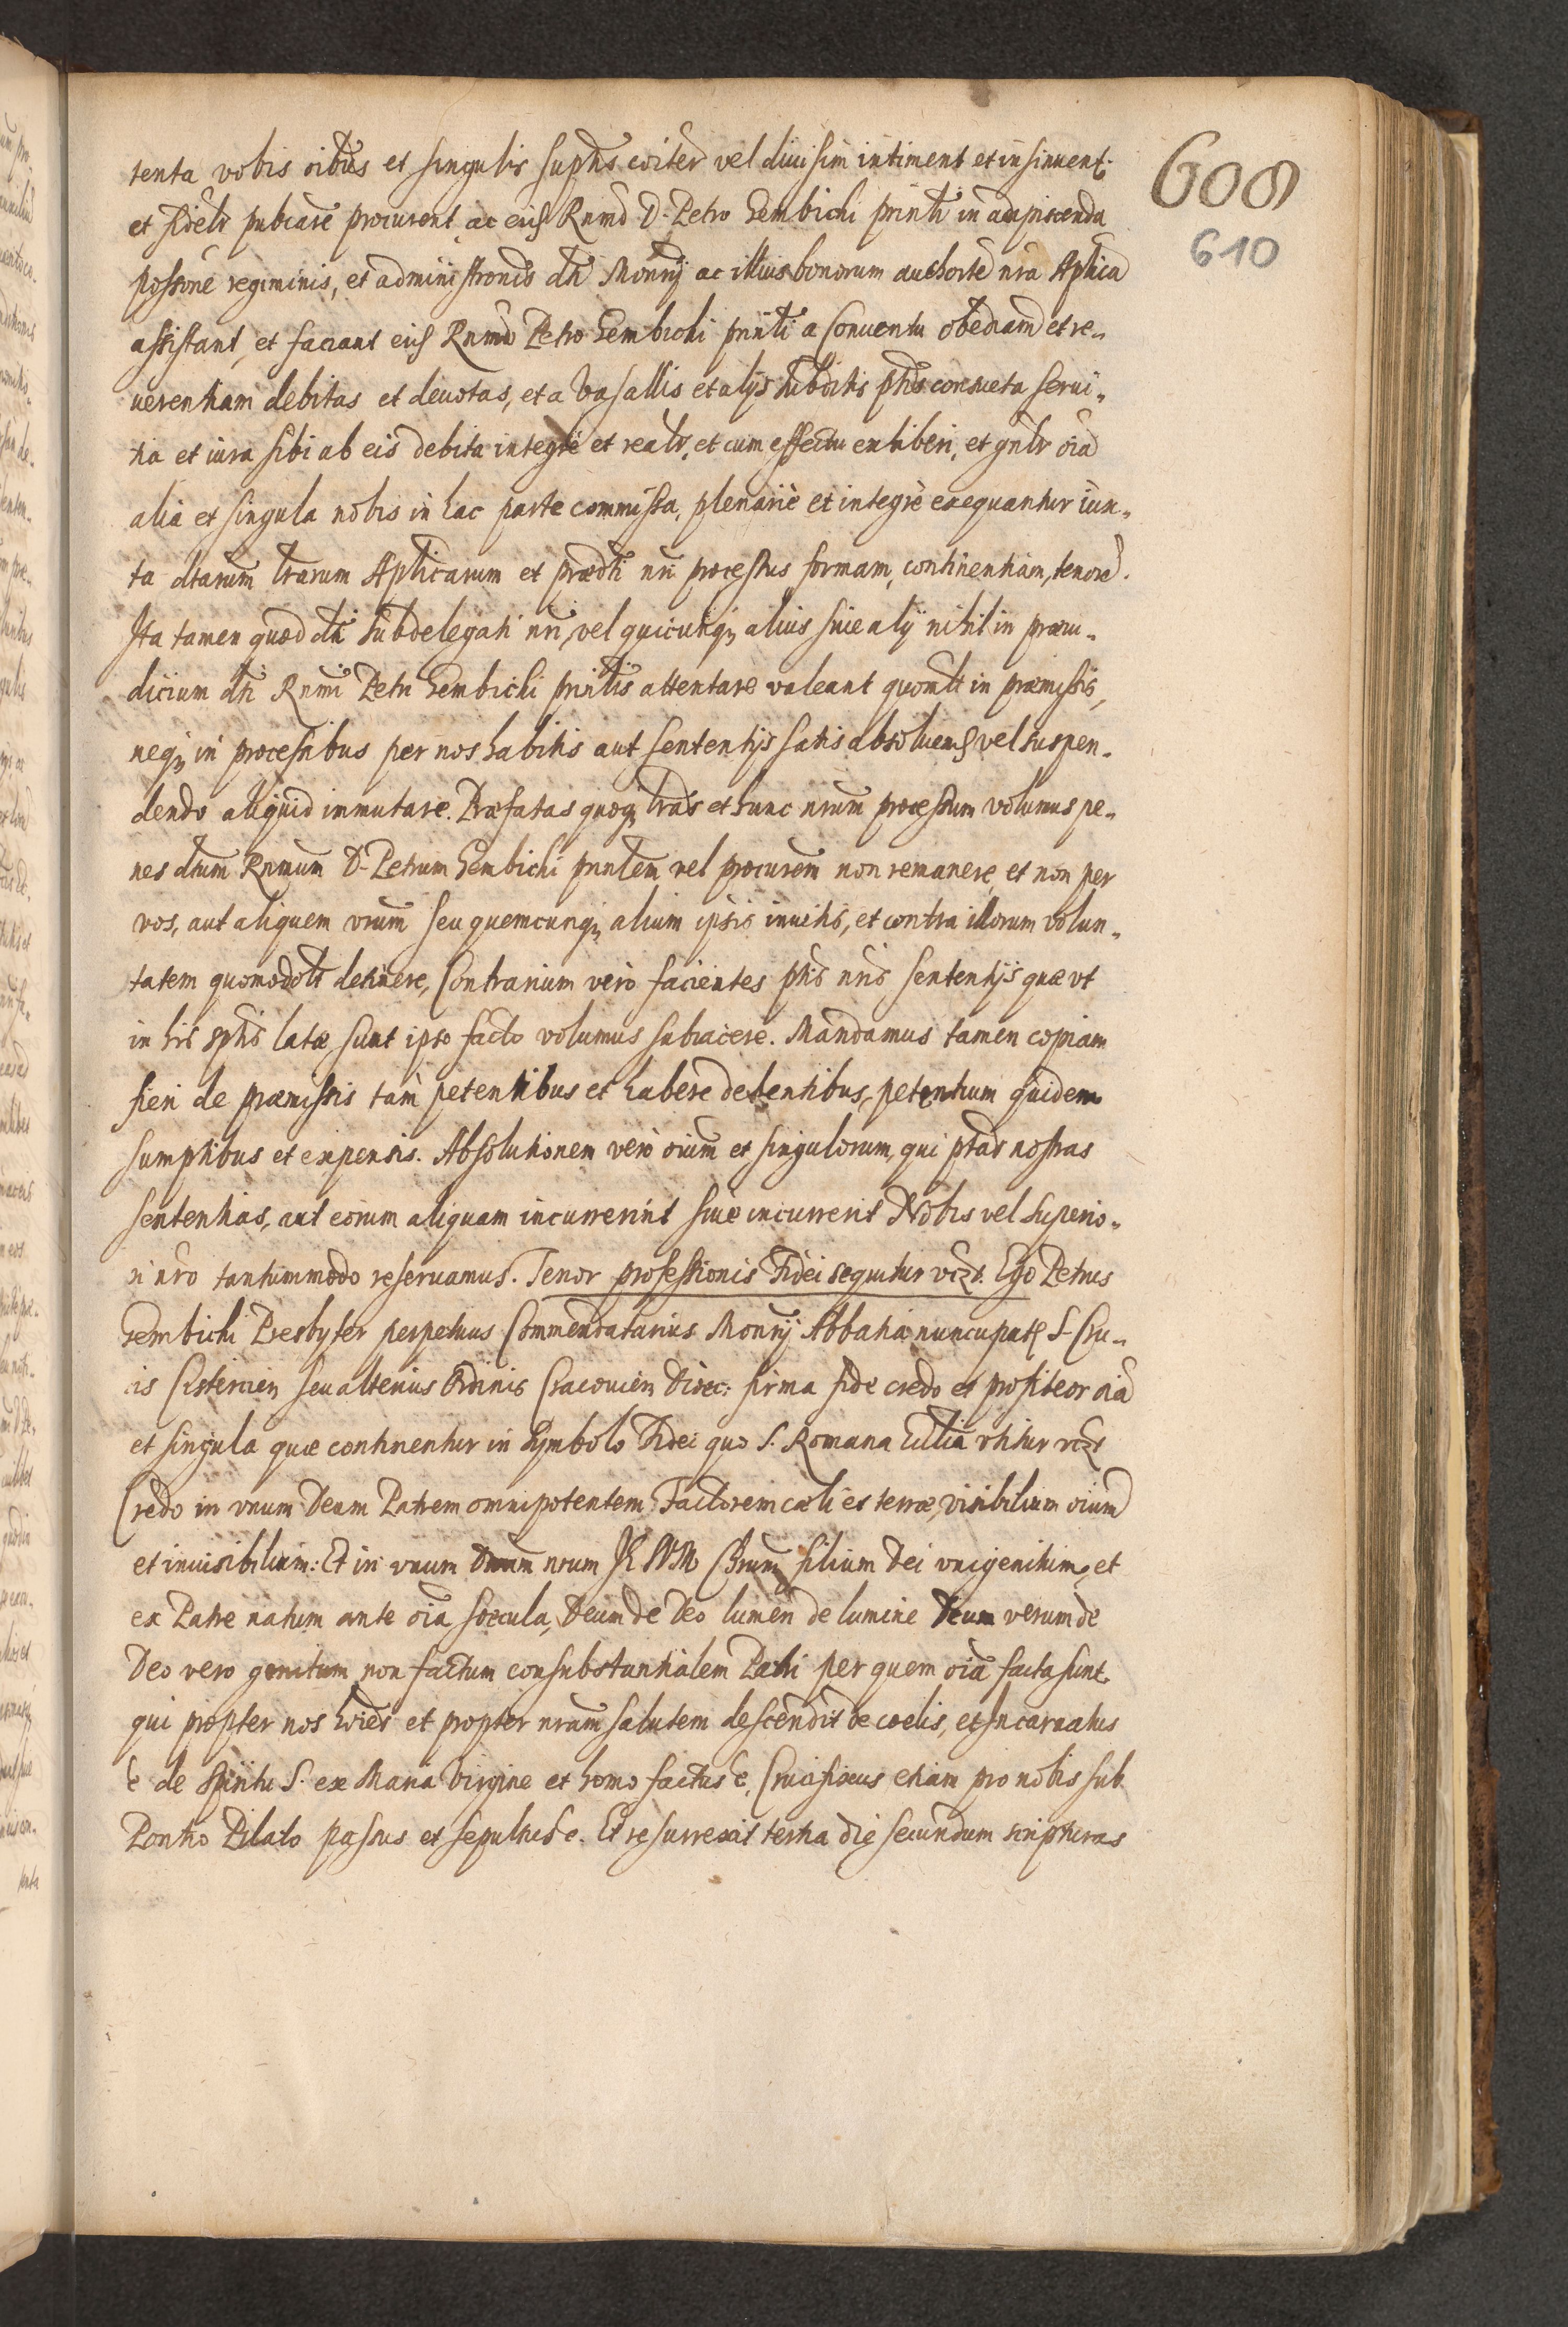 608
610
tenta vobis oibus et singulis suphis coiter vel diuisim intiment et insinuent.
et fideltr pubcare procurent, ac eid Rnmo D. Petro Gembichi printi in adipiscenda
possone regiminis, et administronis dti Monrij ac illius bonorum authorte nra Aplica
assistant, et faciant eid Rnmo Petro Gembichi printi a Conuentu obednam et re„
uerentiam debitas et deuotas, et a Vasallis et alijs subditis phis consueta serui„
tia et iura sibi ab eis debita integre et realtr, et cum effectu exhiberi, et gnltr oia
alia et singula nobis in hac parte commissa, plenarie et integre exequantur iux„
ta dtarum lrarum Aplicarum et prædti nri processus formam, continentiam, tenore.
Ita tamen quod dti subdelegati nri, vel quicunq; alius siue alij nihil in præiu„
dicium dti Rnmi Petri Gembichi printis attentare valeant quomlt in præmissis,
neq; in processibus per nos habitis aut sententijs satis absoluend vel suspen„
dendo aliquid immutare. Præfatas quoq; lras et hunc nrum processum volumus pe„
nes dtum Rnmum D. Petrum Gembichi printem vel procurem non remanere, et non per
vos, aut aliquem vrum seu quemcunq; alium ipsis inuitis, et contra illorum volun„
tatem quomodolt detinere, Contrarium vero facientes phis nris sententijs quæ vt
in his sphis latæ sunt ipso facto volumus subiacere. Mandamus tamen copiam
fieri de præmissis tam petentibus et habere debentibus, petentium quidem
sumptibus et expensis. Absolutionem vero oium et singulorum, qui ptas nostras
sententias, aut eorum aliquam incurrerint siue incurrerit Nobis vel superio„
ri nro tantummodo reseruamus. Tenor professionis Fidei sequitur vczt. Ego Petrus
Gembichi Presbyter perpetuus Commendatarius Monrij Abbatiæ nuncupat S. Cru„
cis Cistercien seu alterius Ordinis Cracouien Diœc: firma fide credo et profiteor oia
et singula quæ continentur in Symbolo Fidei quo S. Romana Ecclia vtitur vczt
Credo in vnum Deum Patrem omnipotentem Factorem cæli et terræ, visibilium oium
et inuisibilium: Et in vnum Dnum nrum IESVM Chrum filium Dei vnigenitum, et
ex Patre natum ante oia sæcula, Deum de Deo lumen de lumine Deum verum de
Deo vero genitum non factum consubstantialem Patri per quem oia facta sunt
qui propter nos hoies et propter nram salutem descendit de cœlis, et Incarnatus
e de Spiritu S. ex Maria Virgine et homo factus e, Crucifixus etiam pro nobis sub
Pontio Pilato passus et sepultus e. Et resurrexit tertia die secundum scripturas